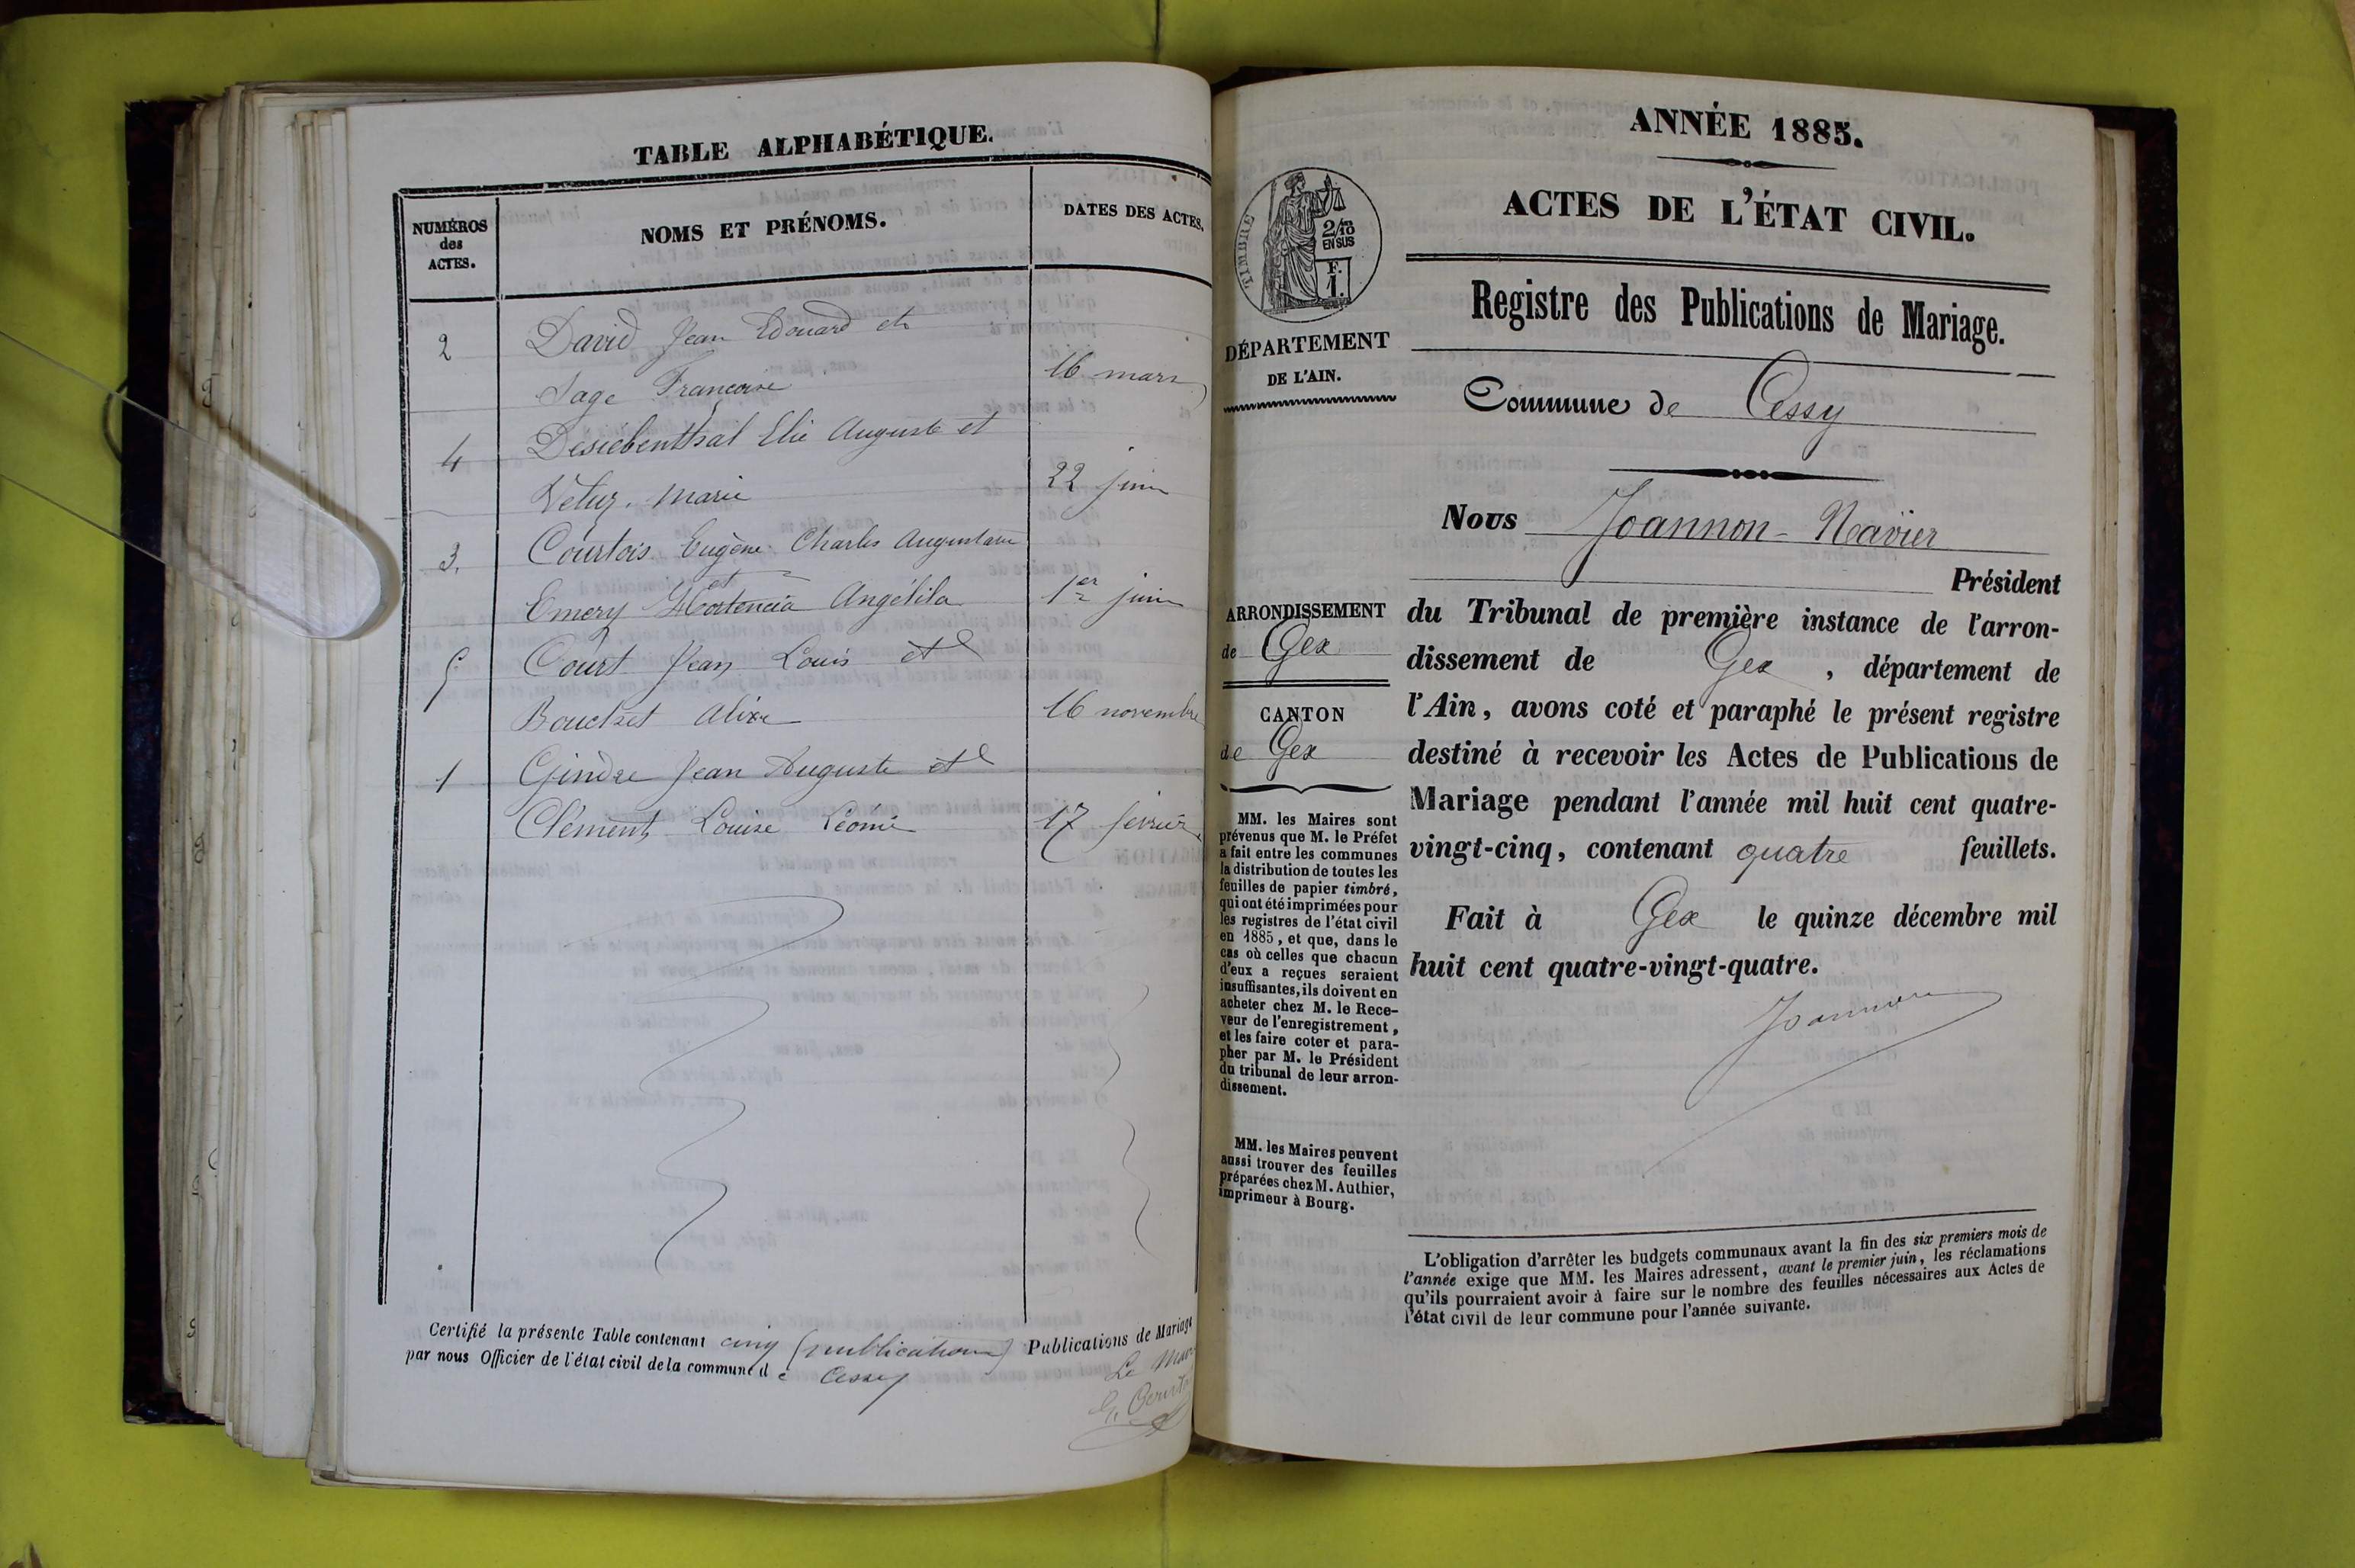 TABLE ALPHABÉTIQUE.
NUMÉROS
des
ACTES.
NOMS ET PRÉNOMS.
DATES DES ACTES.
2 David Jean Edouard et
Sage Françoise 16 mars
4 Desiebenthal Elie Auguste et
Marie 22 juin
3. Courtois Eugène Charles
et
Emery Hortencia Angélila 1er juin
5 Court Jean Louis et
Bouchet Alix 16 novembre
1 Gindre Jean Auguste et
Clément Louise Léonie 17 février
Certifié la présente Table contenant cinq (publications) Publications de Mariage
par nous Officier de l'état civil de la commune de Cessy
Le Maire
ANNÉE 1885.
ACTES DE L'ÉTAT CIVIL.
TIMBRE
2/10
EN SUS
F.
1.
DÉPARTEMENT
DE L'AIN.
Registre des Publications de Mariage.
Commune de Cessy
Nous Joannon-Navier
Président
ARRONDISSEMENT
de Gex
CANTON
de Gex
du Tribunal de première instance de l'arron-
dissement de Gex, département de
l'Ain, avons coté et paraphé le présent registre
destiné à recevoir les Actes de Publications de
Mariage pendant l'année mil huit cent quatre-
vingt-cinq, contenant quatre feuillets.
Fait à Gex le quinze décembre mil
huit cent quatre-vingt-quatre.
Joannon
MM. les Maires sont
prévenus que M. le Préfet
a fait entre les communes
la distribution de toutes les
feuilles de papier timbré,
qui ont été imprimées pour
les registres de l'état civil
en 1885, et que, dans le
cas où celles que chacun
d'eux a reçues seraient
insuffisantes, ils doivent en
acheter chez M. le Rece-
veur de l'enregistrement,
et les faire coter et para-
pher par M. le Président
du tribunal de leur arron-
dissement.
MM. les Maires peuvent
aussi trouver des feuilles
préparées chez M. Authier,
imprimeur à Bourg.
L'obligation d'arrêter les budgets communaux avant la fin des six premiers mois de
l'année exige que MM. les Maires adressent, avant le premier juin, les réclamations
qu'ils pourraient avoir à faire sur le nombre des feuilles nécessaires aux Actes de
l'état civil de leur commune pour l'année suivante.